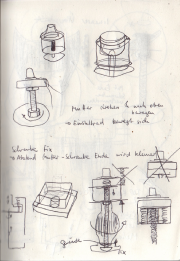 x
Mutter drehen & nach oben
bewegen
→ bewegt sich
Schraube fix
→ Abstand Mutter-Schraube Ende wird kleiner
fix